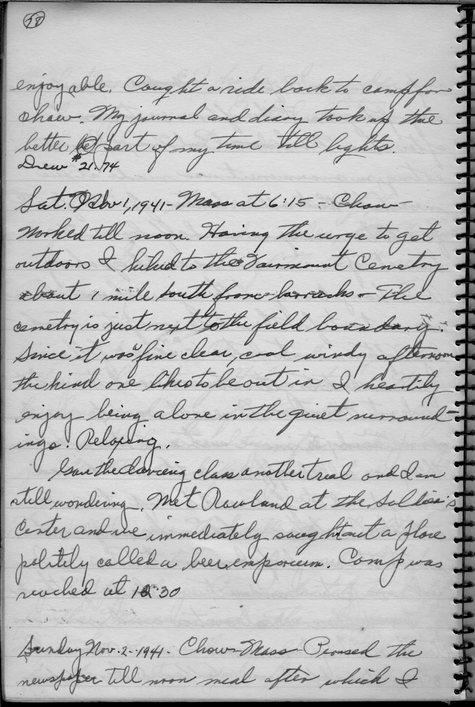 57
enjoyable. Caught a ride back to camp for
chow. My journal and diary took up the
better part of my time till lights.
Drew $21.74
Sat. Nov 1, 1941 - Mass at 6:15 - Chow -
Worked till noon. Having the urge to get
outdoors I hiked to the Fairmount Cemetry
about 1 mile south from barracks - The
cemetry is just next to the field boundary.
Since it was fine clear, cool windy afternoon
the kind one likes to be out in I heartily
enjoy being alone in the quiet surround-
ings. Relaxing.
Gave the dancing class another trial and I am
still wondering. Met Rowland at the Soldier's
Center and we immediately sought out a place
politely called a beer emporium. Camp was
reached at 10 30
Sunday Nov. 2 - 1941 - Chow - Mass - Perused the
newspaper till noon meal after which I